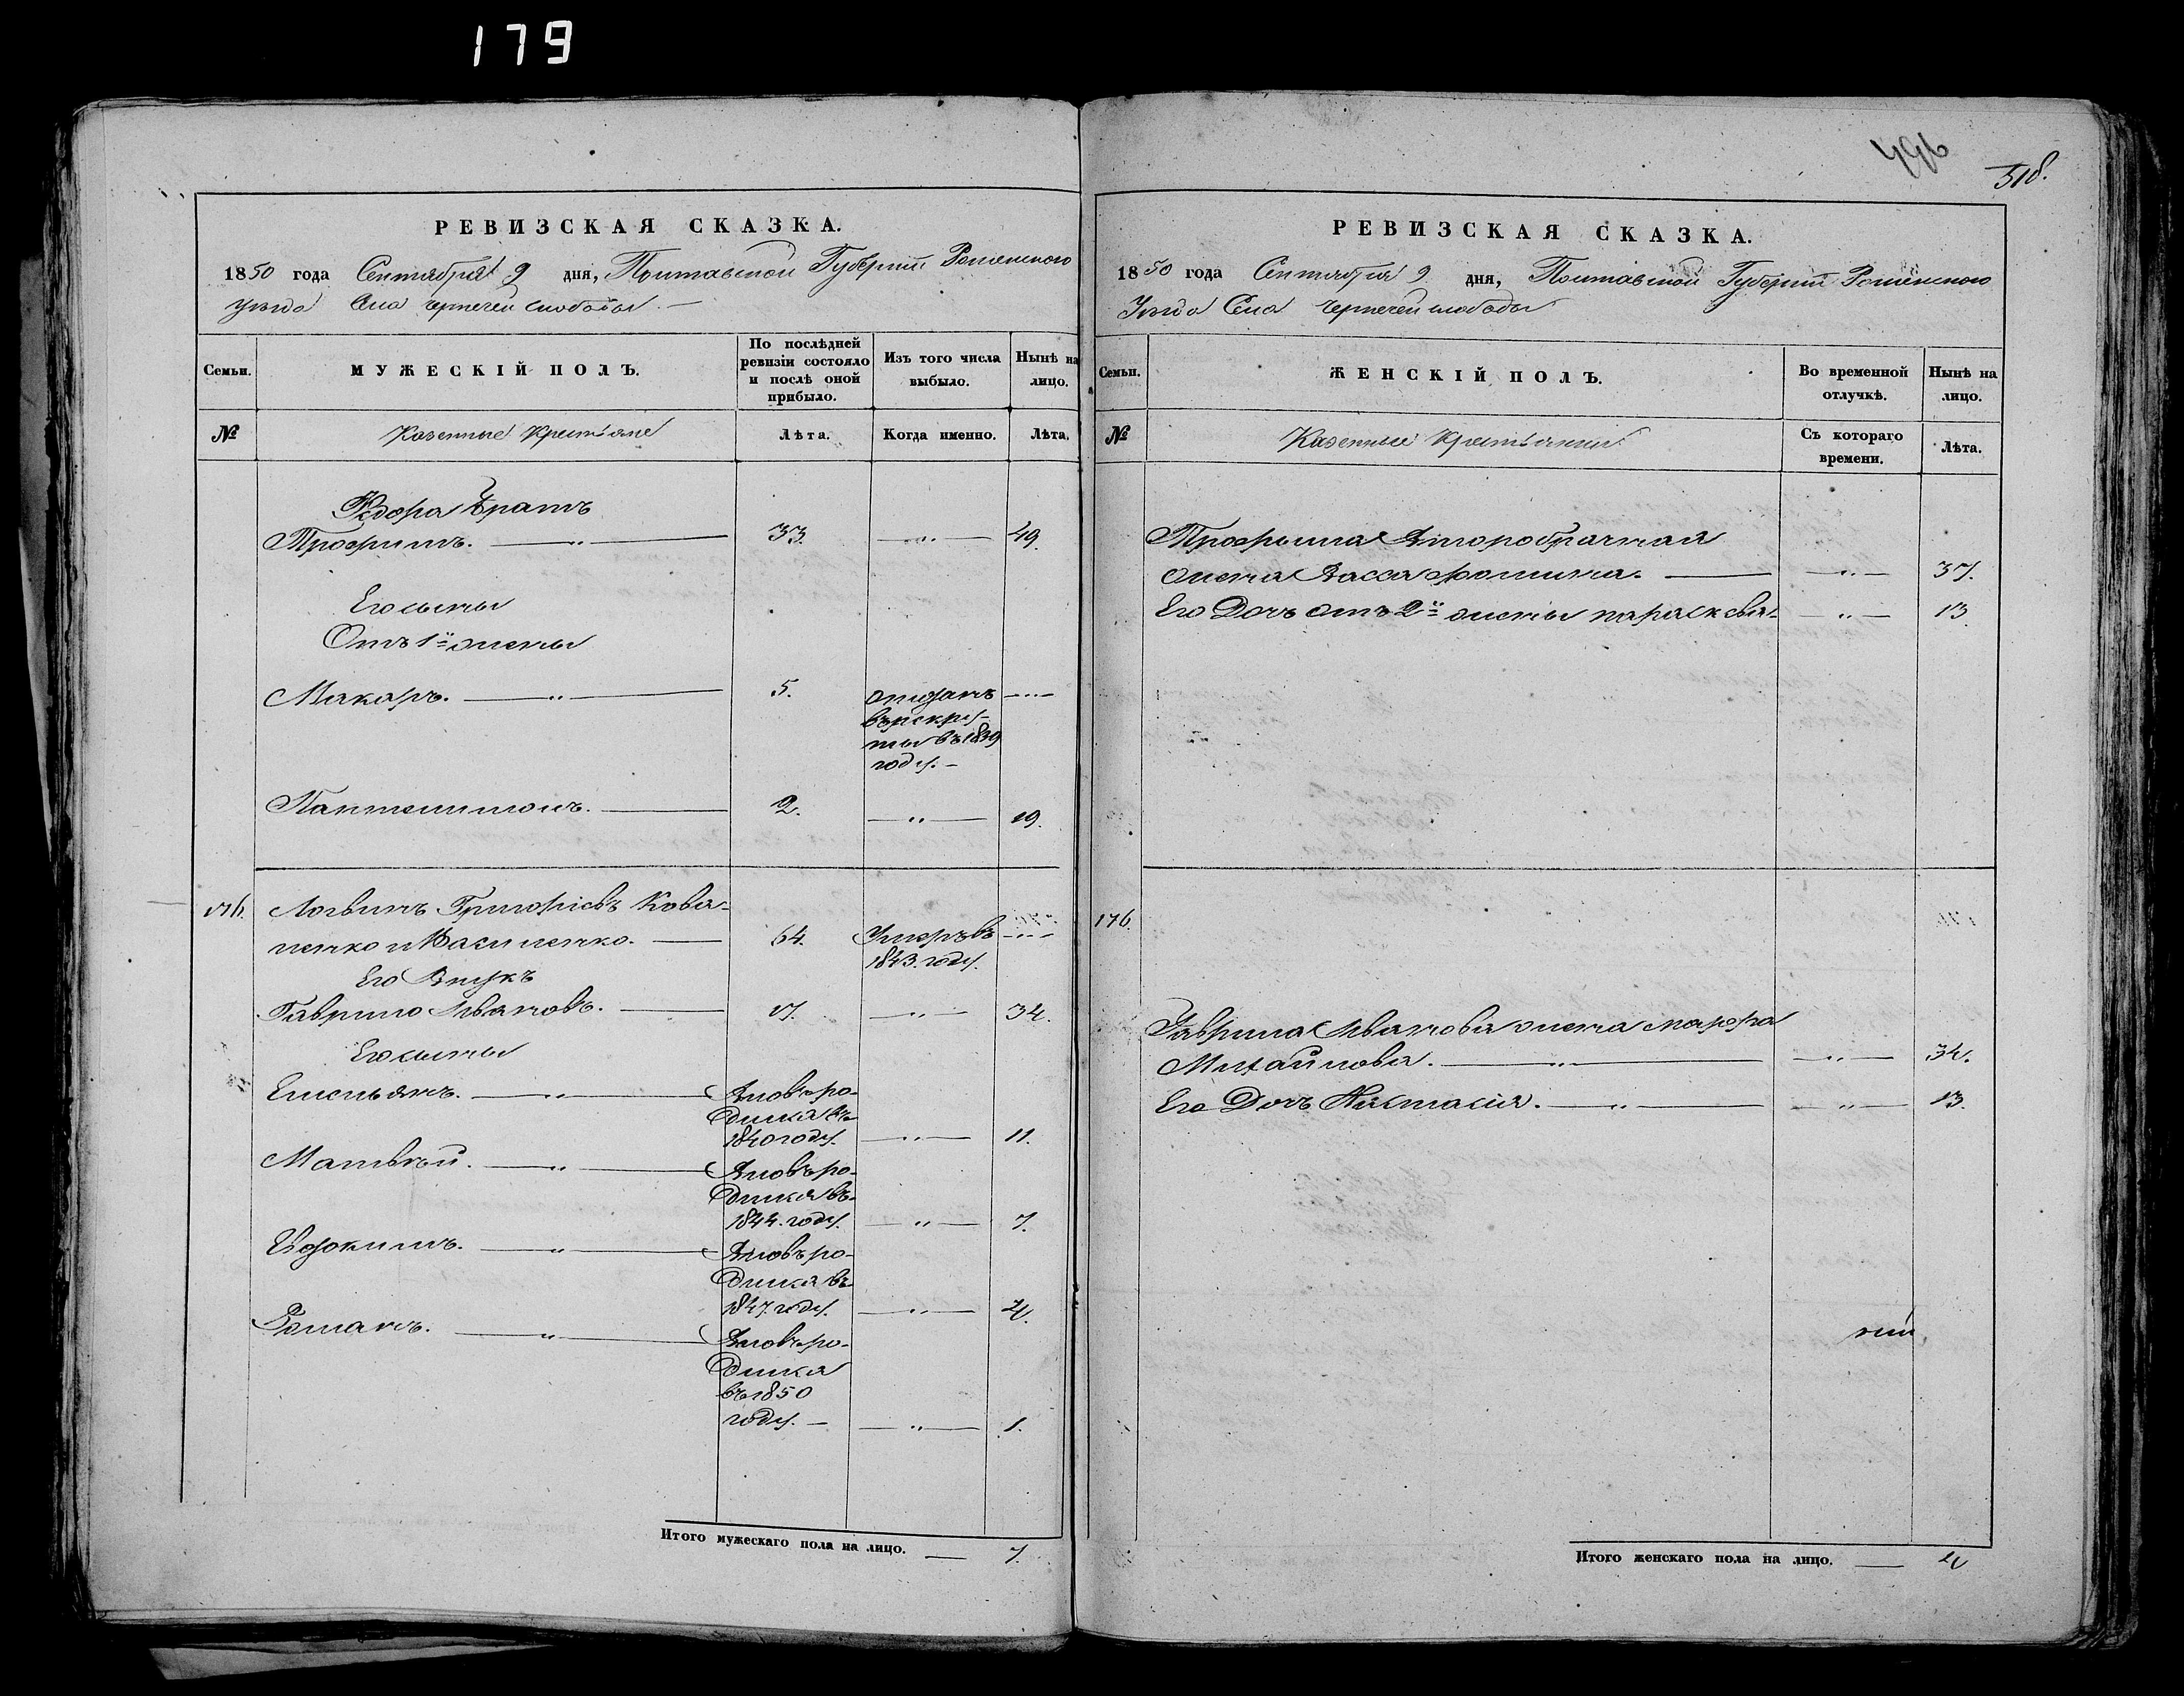 179
РЕВИЗСКАЯ СКАЗКА.
1850 года Сентября 9 дня, Полтавской Губернии Роменского
уезда Села Чернечей слободы
Семьи. МУЖЕСКІЙ ПОЛЪ. По послѣдней ревизіи состояло и послѣ оной прибыло. Изъ того числа выбыло. Нынѣ на лицо.
№ Казенные Крестьяне Лѣта. Когда именно. Лѣта.
Федора братъ
Трофимъ. 33. 49.
Его сыны
Отъ 1й жены
Макаръ. 5. отданъ
въ рекру-
ты въ 1839
году.
Пантелимонъ. 2. 19.
176. Логвинъ Григорьевъ Кова-
ленко и Василенко. 64. Умеръ въ
1843. году.
Его Внукъ
Гаврило Ивановъ. 17. 34.
Его сыны
Емельянъ. Вновь ро-
дился въ
1840 году. 11.
Матвѣй. Вновь ро-
дился въ
1844. году. 7.
Вновь ро-
дился въ
1847. году. 4.
Романъ. Вновь ро-
дился
въ 1850
году. 1.
Итого мужескаго пола на лицо. 7.
496
518.
РЕВИЗСКАЯ СКАЗКА.
1850 года Сентября 9 дня, Полтавской Губернии Роменского
Уезда Села Чернечей слободы
Семьи. ЖЕНСКІЙ ПОЛЪ. Во временной отлучкѣ. Нынѣ на лицо.
№ Казенные Крестьянки Съ котораго времени. Лѣта.
Трофыма Второбрачная
жена Васса Фомина. 37.
Его Дочь отъ 2й жены Параскевия. 13.
176.
Гаврила Иванова жена Марфа
Михайлова. 34.
Его Дочь Настасия. 13.
Итого женскаго пола на лицо. 4